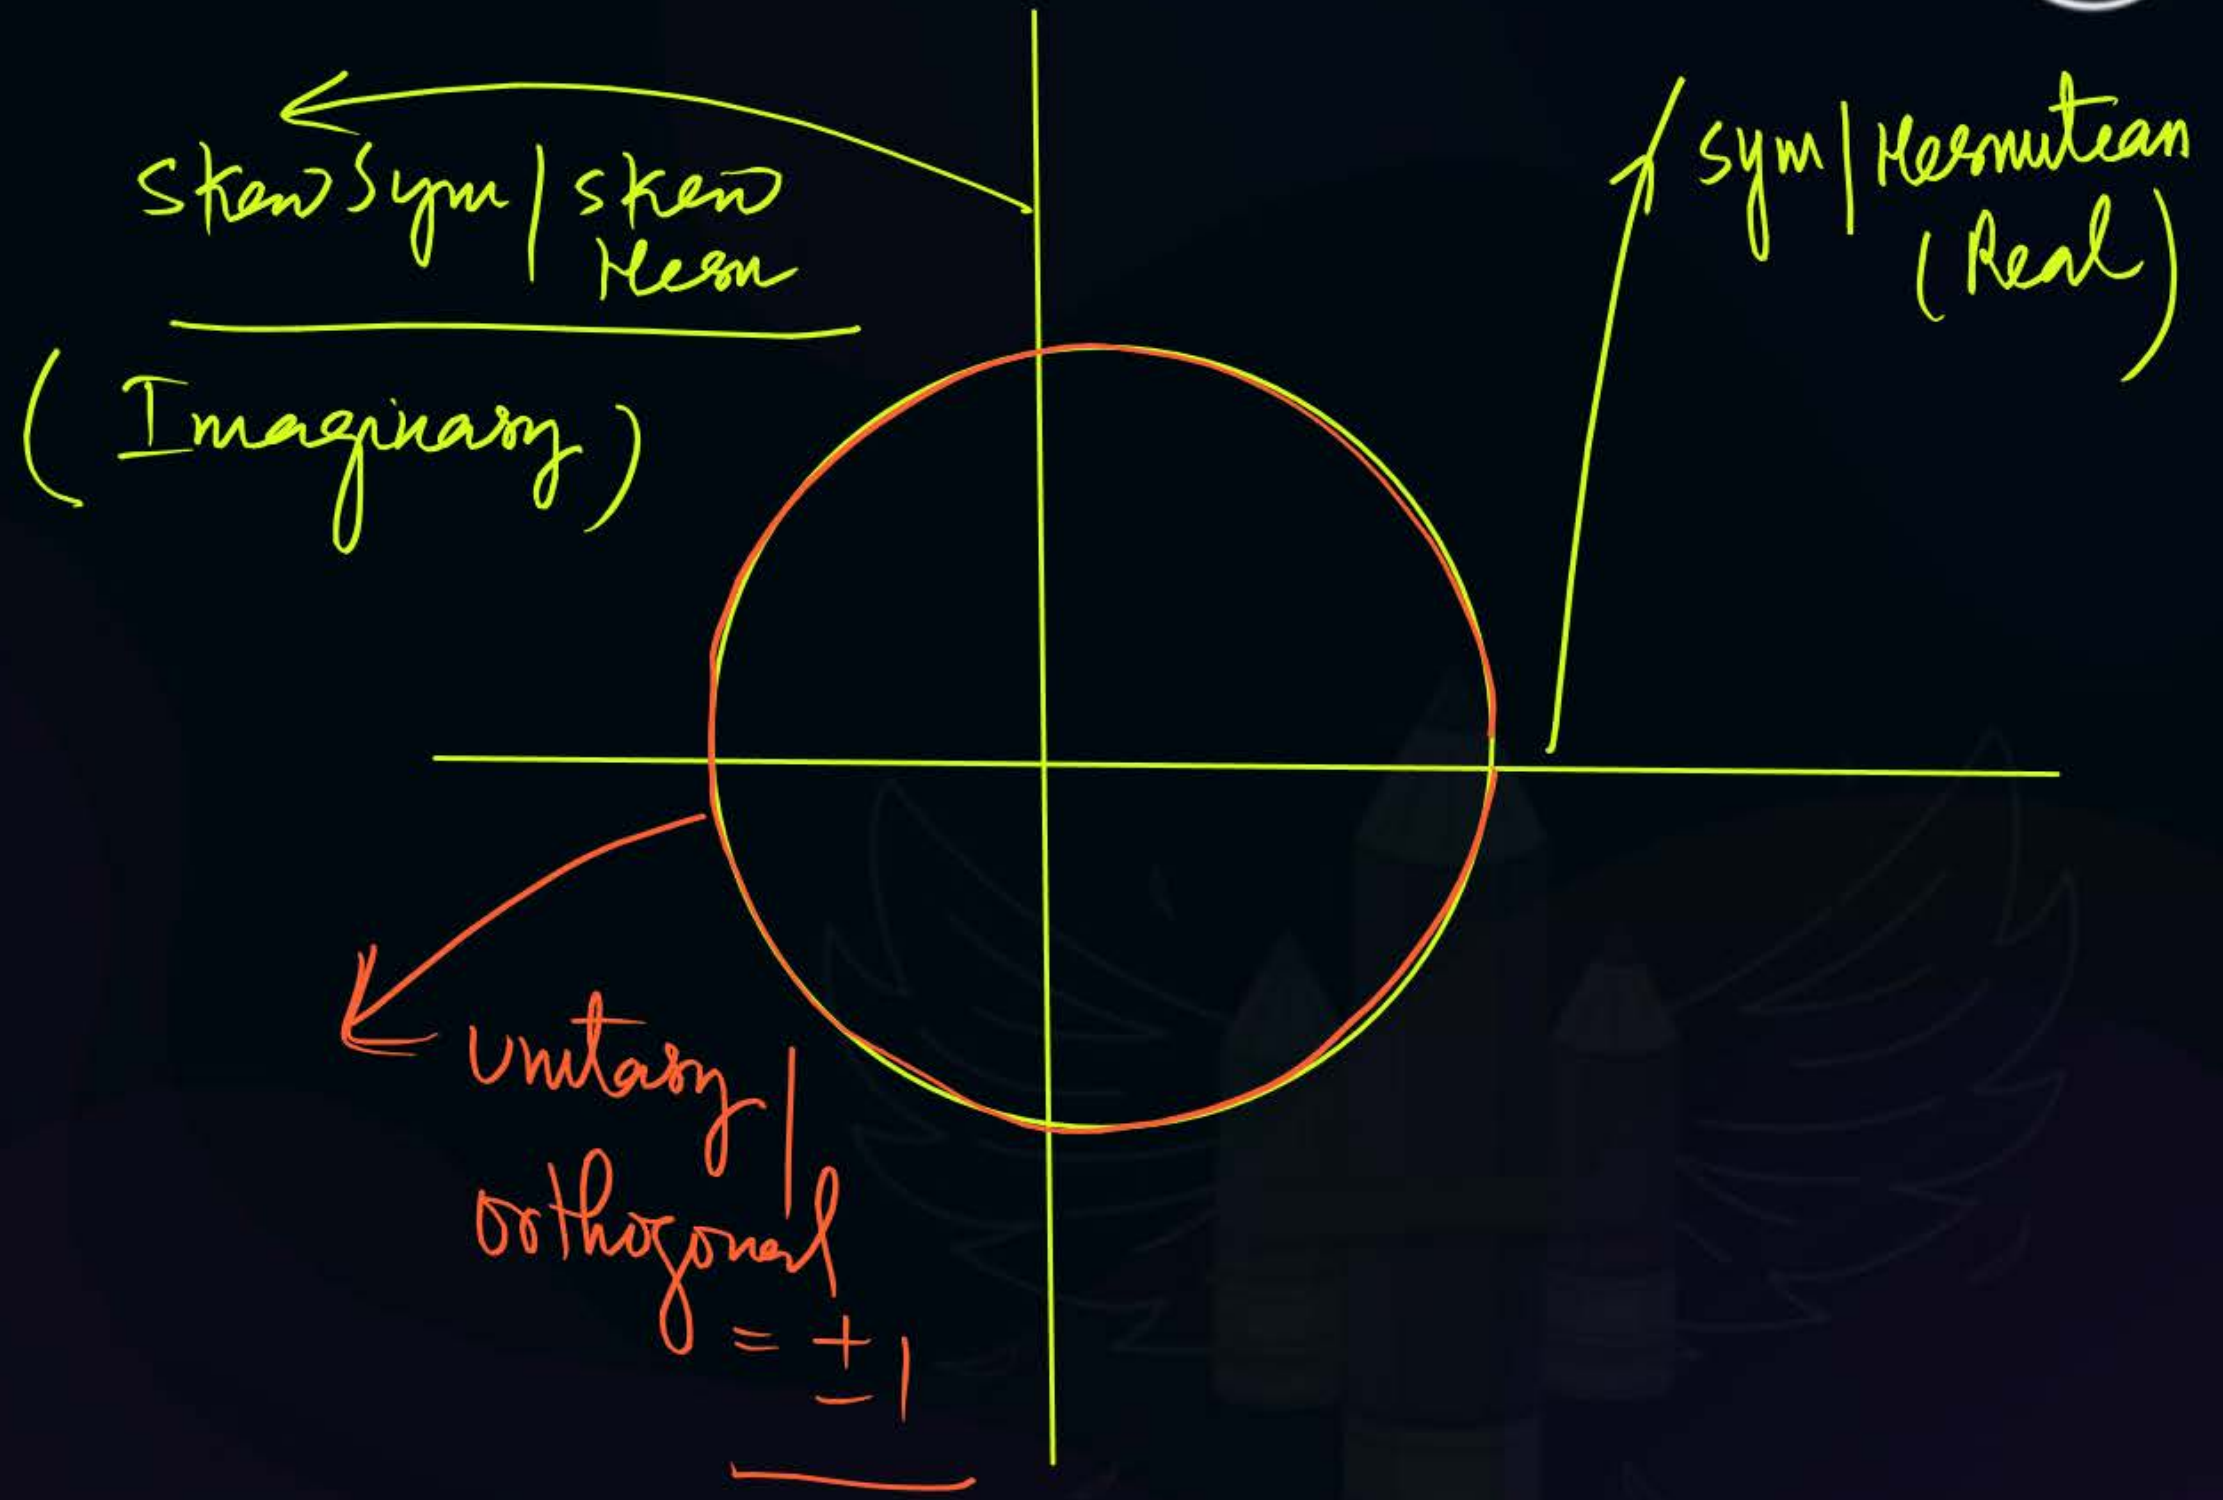 Skew Sym | Skew
Herm
(Imaginary)
Sym | Hermitean
(Real)
Unitary |
orthogonal
= ± 1